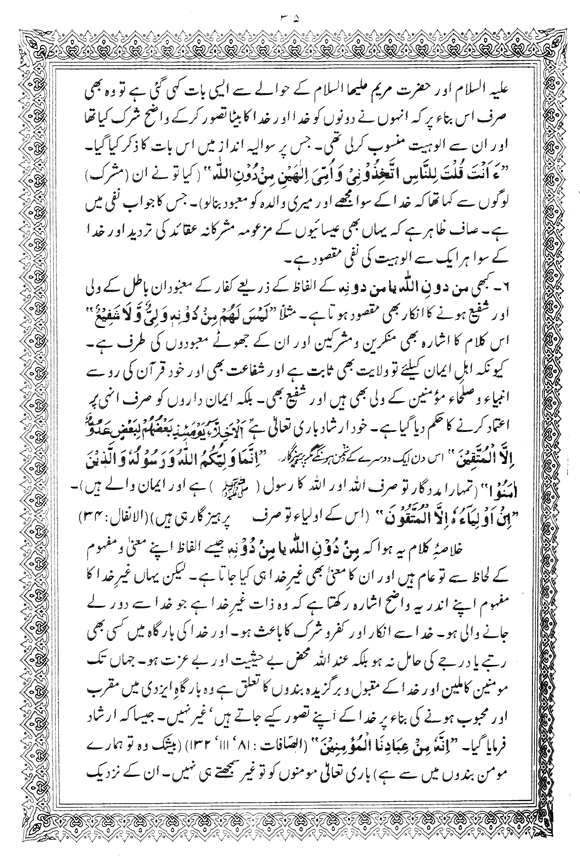 ۳۵
علیہ السلام اور حضرت مریم علیھا السلام کے حوالے سے ایسی بات کہی گئی ہے تو وہ بھی
صرف اس بناء پر کہ انہوں نے دونوں کو خدا اور خدا کا بیٹا تصور کرکے واضح شرک کیا تھا
اور ان سے الوہیت منسوب کرلی تھی۔ جس پر سوالیہ انداز میں اس بات کا ذکر کیا گیا۔
”ءَاَنْتَ قُلْتَ لِلنَّاسِ اتَّخِذُوْنِیْ وَاُمِّیَ اِلٰھَیْنِ مِنْ دُوْنِ اللّٰہِ“ (کیا تو نے ان (مشرک)
لوگوں سے کہا تھا کہ خدا کے سوا مجھے اور میری والدہ کو معبود بنالو)۔ جس کا جواب نفی میں
ہے۔ صاف ظاہر ہے کہ یہاں بھی عیسائیوں کے مزعومہ مشرکانہ عقائد کی تردید اور خدا
کے سوا ہر ایک سے الوہیت کی نفی مقصود ہے۔
۶۔ کبھی من دون اللہ یا من دونہ کے الفاظ کے ذریعے کفار کے معبودان باطل کے ولی
اور شفیع ہونے کا انکار بھی مقصود ہوتا ہے۔ مثلاً ”لَیْسَ لَھُمْ مِنْ دُوْنِہٖ وَلِیٌّ وَّلَا شَفِیْعٌ“
اس کلام کا اشارہ بھی منکرین و مشرکین اور ان کے جھوٹے معبودوں کی طرف ہے۔
کیونکہ اہل ایمان کیلئے تو ولایت بھی ثابت ہے اور شفاعت بھی اور خود قرآن کی رو سے
انبیاء و صلحاء مؤمنین کے ولی بھی ہیں اور شفیع بھی۔ بلکہ ایمان داروں کو صرف انہی پر
اعتماد کرنے کا حکم دیا گیا ہے۔ خود ارشاد باری تعالٰی ہے اَلْاَخِلَّآءُ یَوْمَئِذٍۭ بَعْضُھُمْ لِبَعْضٍ عَدُوٌّ
اِلَّا الْمُتَّقِیْنَ“ اس دن ایک دوسرے کے دشمن ہونگے مگر پرہیزگار۔ ”اِنَّمَا وَلِیُّکُمُ اللّٰہُ وَرَسُوْلُہٗ وَالَّذِیْنَ
اٰمَنُوْا“ (تمہارا مددگار تو صرف اللہ اور اللہ کا رسول (ﷺ) ہے اور ایمان والے ہیں)۔
”اِنْ اَوْلِیَآءُہٗ اِلَّا الْمُتَّقُوْنَ“ (اس کے اولیاء تو صرف پرہیزگار ہی ہیں) (الانفال:۳۴)
خلاصۂ کلام یہ ہوا کہ مِنْ دُوْنِ اللّٰہِ یا مِنْ دُوْنِہٖ جیسے الفاظ اپنے معنیٰ و مفہوم
کے لحاظ سے تو عام ہیں اور ان کا معنیٰ بھی غیرِ خدا ہی کیا جاتا ہے۔ لیکن یہاں غیرِ خدا کا
مفہوم اپنے اندر یہ واضح اشارہ رکھتا ہے کہ وہ ذات غیرِ خدا ہے جو خدا سے دور لے
جانے والی ہو۔ خدا سے انکار اور کفر و شرک کا باعث ہو۔ اور خدا کی بارگاہ میں کسی بھی
رتبے یا درجے کی حامل نہ ہو بلکہ عند اللہ محض بے حیثیت اور بے عزت ہو۔ جہاں تک
مومنین کاملین اور خدا کے مقبول و برگزیدہ بندوں کا تعلق ہے وہ بارگاہ ایزدی میں مقرب
اور محبوب ہونے کی بناء پر خدا کے اپنے تصور کیے جاتے ہیں‘ غیر نہیں۔ جیسا کہ ارشاد
فرمایا گیا۔ ”اِنَّہٗ مِنْ عِبَادِنَا الْمُؤْمِنِیْنَ“ (الصّافات:۸۱‘ ۱۱۱‘ ۱۳۲) (بیشک وہ تو ہمارے
مومن بندوں میں سے ہے) باری تعالٰی مومنوں کو تو غیر سمجھتے ہی نہیں۔ ان کے نزدیک